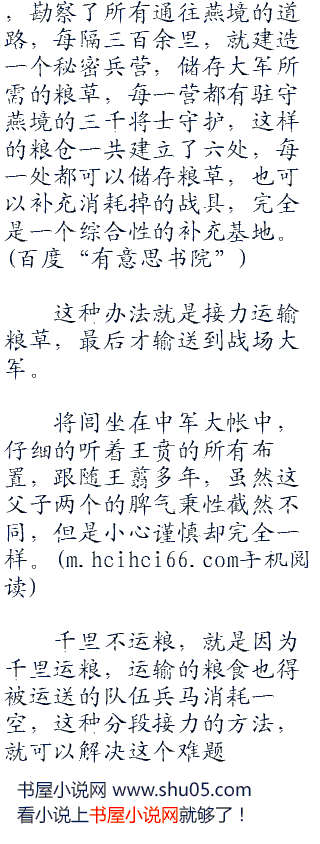 ，勘察了所有通往燕境的道
路，每隔三百余里，就建造
一个秘密兵营，储存大军所
需的粮草，每一营都有驻守
燕境的三千将士守护，这样
的粮仓一共建立了六处，每
一处都可以储存粮草，也可
以补充消耗掉的战具，完全
是一个综合性的补充基地。
(百度“有意思书院”)
这种办法就是接力运输
粮草，最后才输送到战场大
军。
将闾坐在中军大帐中，
仔细的听着王贲的所有布
置，跟随王翦多年，虽然这
父子两个的脾气秉性截然不
同，但是小心谨慎却完全一
样。(m.hcihci66.com手机阅
读)
千里不运粮，就是因为
千里运粮，运输的粮食也得
被运送的队伍兵马消耗一
空，这种分段接力的方法，
就可以解决这个难题
书屋小说网 www.shu05.com
看小说上书屋小说网就够了！